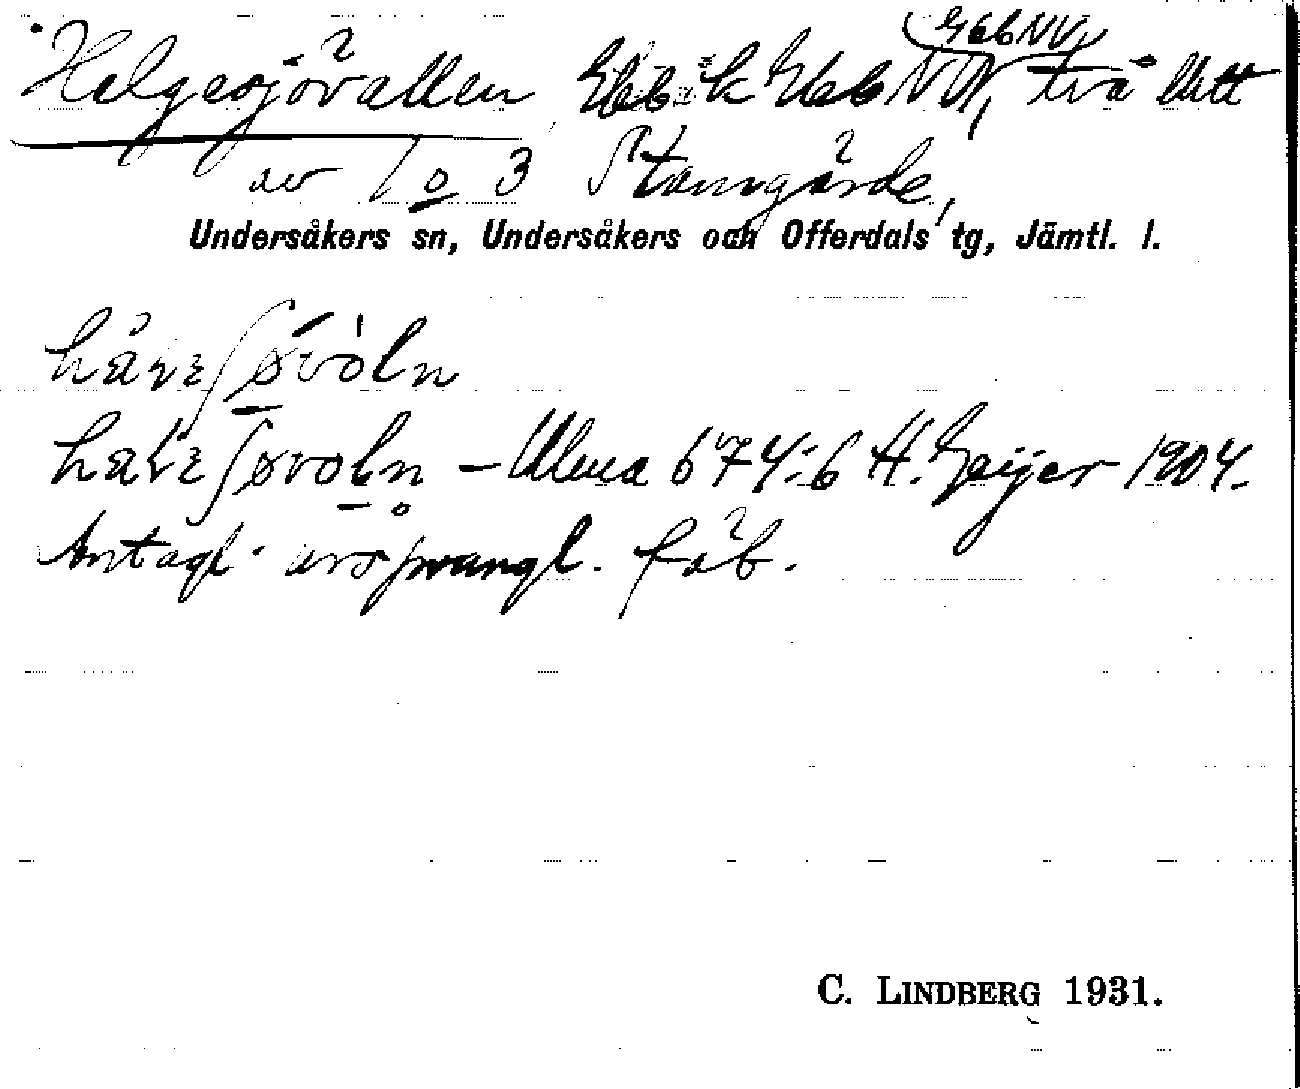 GebNV,
Helgesjövallen, Geb: k Geb NV, två litt
av 1 o 3 Stamgärde,
Undersåkers sn, Undersåkers och Offerdals tg, Jämtl. l.
— Ulma 674:6 H. Geijer 1904.
Antagl. ursprungl. fäb.
C. LINDBERG 1931.